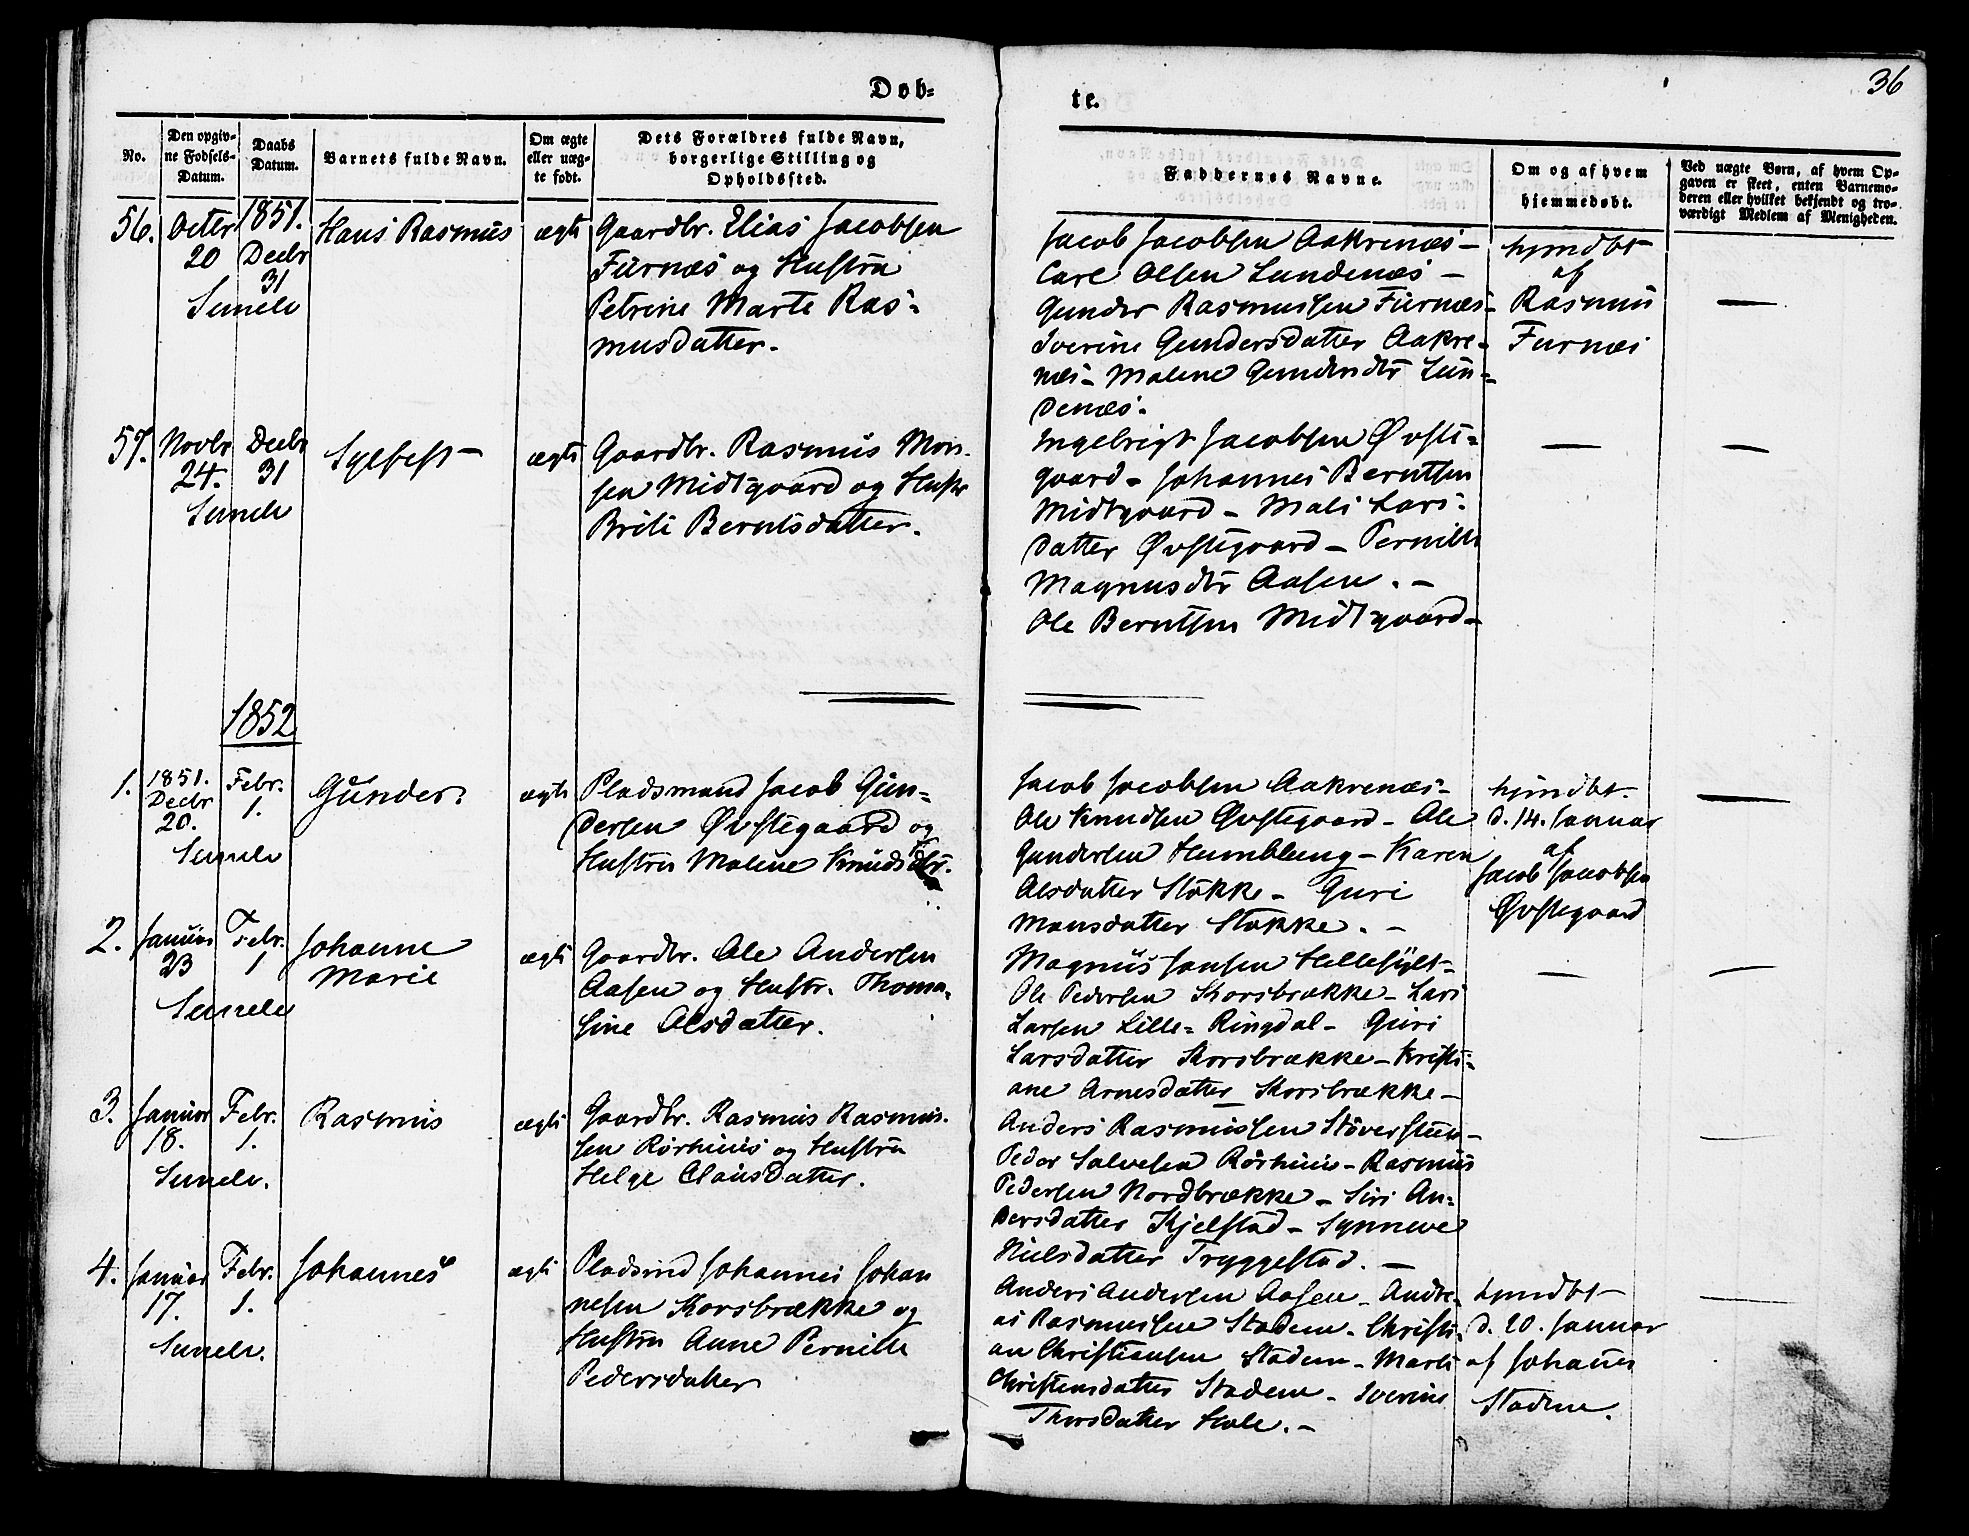 36
Døb-
te.
No.
Den opgiv-
ne Fødsels-
Datum.
Daabs
Datum.
Barnets fulde Navn.
Om ægte
eller uæg-
te født.
Dets Forældres fulde Navn,
borgerlige Stilling og
Opholdssted.
Faddernes Navne.
Om og af hvem
hjemmedøbt.
Ved uægte Børn, af hvem Op-
gaven er skeet, enten Barnemo-
deren eller hvilket bekjendt og tro-
værdigt Medlem af Menigheden.
56.
Octbr
20
1851.
Decbr
31
Sunelv
Hans Rasmus
ægte
Gaardbr. Elias Jacobsen
Furnæs og Hustru
Petrine Marte Ras-
musdatter.
Jacob Jacobsen Aakrenæs -
Carl Olsen Lundenæs -
Gunder Rasmussen Furnæs -
Iverine Gundersdatter Aakre-
næs - Malene Gundersdtr Lun-
denæs.
hjmdbt
af
Rasmus
Furnæs
—
57.
Novbr
24.
Decbr
31
Sunelv
Sylfest
ægte
Gaardbr. Rasmus Mon-
sen Midtgaard og Hustr
Brite Berntsdatter.
Ingebrigt Jacobsen Øvste-
gaard - Johannes Berntsen
Midtgaard - Mali Lars-
datter Øvstegaard - Pernille
Magnusdtr Aasen. -
Ole Berntsen Midtgaard -
—
—
1852
1.
1851.
Decbr
20.
Febr.
1.
Sunelv
Gunder.
ægte
Pladsmand Jacob Gun-
dersen Øvstegaard og
Hustru Malene Knudsdtr.
Jacob Jacobsen Aakrenæs -
Ole Knudsen Øvstegaard - Ole
Gundersen Humblung - Karen
Olsdatter Stokke - Guri
Monsdatter Stokke. -
hjmdbt.
d. 14. Januar
af
Jacob Jacobsen
Øvstegaard
—
2.
Januar
23
Febr.
1
Sunelv
Johanne
Marie
ægte
Gaardbr. Ole Andersen
Aasen og Hustr. Thoma-
sine Olsdatter.
Magnus Jansen Hellesylt -
Ole Pedersen Korsbrække - Lars
Larsen Lille-Ringdal - Guri
Larsdatter Korsbrække - Kristi-
ane Arnesdatter Korsbrække -
—
—
3.
Januar
18.
Febr.
1.
Sunelv.
Rasmus
ægte
Gaardbr. Rasmus Rasmus-
sen Rørhuus og Hustru
Helge Clausdatter.
Anders Rasmussen
Peder Salvesen Rørhuus - Rasmus
Pedersen Nordbrække - Siri An-
dersdatter Kjelstad - Synneve
Nielsdatter Tryggestad. -
—
4.
Januar
17.
Febr.
1.
Sunelv.
Johannes
ægte
Pladsmd Johannes Johan
nesen Korsbrække og
Hustru Anne Pernille
Pedersdatter
Anders Andersen Aasen - Andre-
as Rasmussen Stadem - Christi-
an Christiansen Stadem - Marte
Christensdatter Stadem - Iverine
Thorsdatter Hole. -
hjmdbt
d. 20. Januar
af Johannes
Stadem.
—